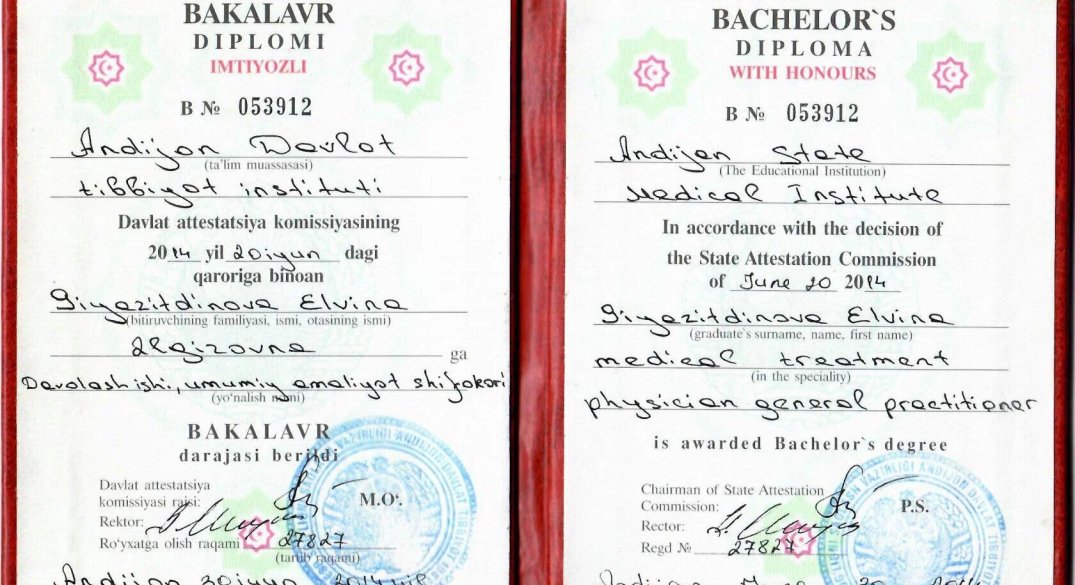 BAKALAVR
DIPLOMI
IMTIYOZLI
B № 053912
Andijon Davlat
(ta'lim muassasasi)
tibbiyot instituti
Davlat attestatsiya komissiyasining
2014 yil 20 iyun dagi
qaroriga binoan
Giyazitdinova Elvina
(bitiruvchining familiyasi, ismi, otasining ismi)
ga
Davolash ishi, umumiy amaliyot shifokori
(yo'nalish nomi)
BAKALAVR
darajasi berildi
Davlat attestatsiya
komissiyasi raisi:
M.O'.
Rektor:
Ro'yxatga olish raqami 27827
(tartib raqami)
Andijon 20 iyun 2014 yil
BACHELOR`S
DIPLOMA
WITH HONOURS
B № 053912
Andijan State
(The Educational Institution)
Medical Institute
In accordance with the decision of
the State Attestation Commission
of June 20 2014
Giyazitdinova Elvina
(graduate`s surname, name, first name)
medical treatment
(in the speciality)
physician general practitioner
is awarded Bachelor`s degree
Chairman of State Attestation
Commission:
P.S.
Rector:
Regd № 27827